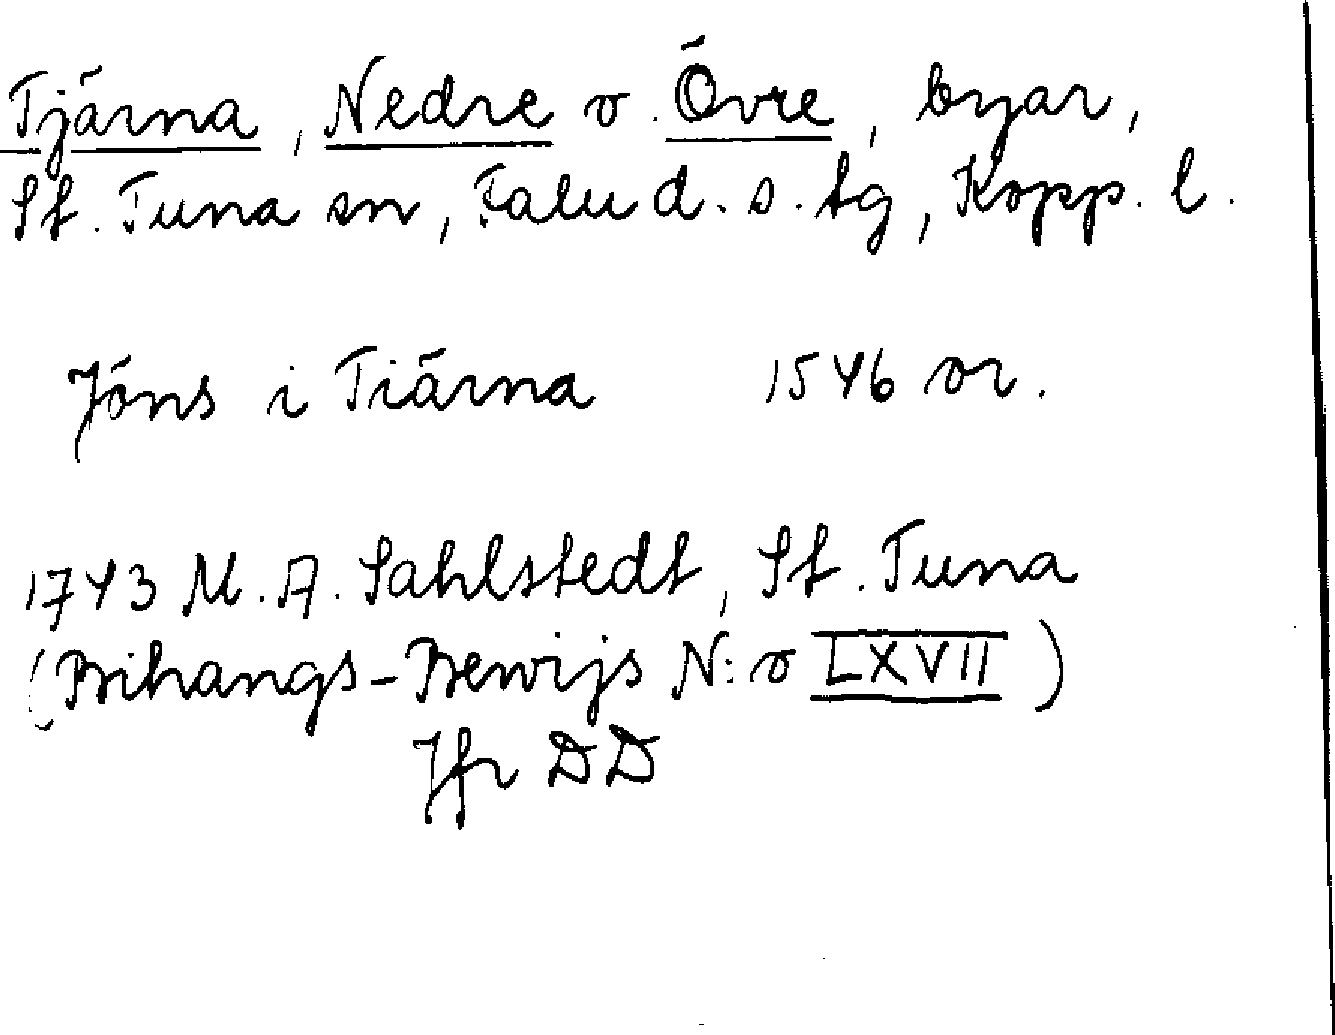 Tjärna, Nedre o. Övre, byar,
St. Tuna sn, Falu d. s. tg, Kopp. l.
Jöns i Tiärna 1546 or.
1743 M. A. Sahlstedt, St. Tuna
(Bihangs-Bewijs N:o LXVII)
Jfr DD